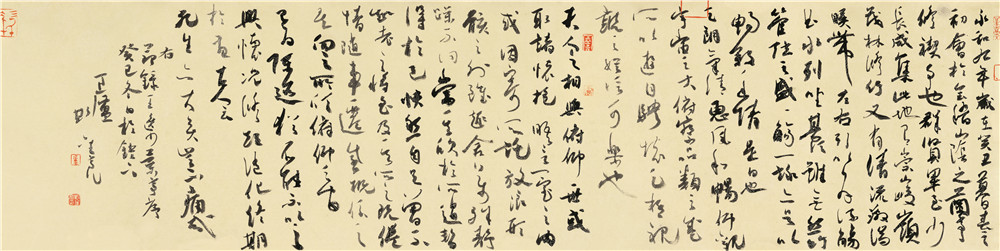 永和九年歲在癸丑暮春之
初會於會稽山陰之蘭亭
修禊事也群賢畢至少
長咸集此地有崇山峻嶺
茂林修竹又有清流激湍
映帶左右引以為流觴
曲水列坐其次雖無絲竹
管弦之盛一觴一詠亦足以
暢敘幽情是日也
天朗氣清惠風和暢仰觀
宇宙之大俯察品類之盛
所以遊目騁懷足以極視
聽之娛信可樂也
夫人之相與俯仰一世或
取諸懷抱晤言一室之內
或因寄所託放浪形
骸之外雖趣舍萬殊靜
躁不同當其欣於所遇暫
得於己快然自足曾不
知老之將至及其所之既倦
情隨事遷感慨係之
矣向之所欣俯仰之間
已為陳迹猶不能不以之
興懷況修短隨化終期
於盡古人云
死生亦大矣豈不痛哉
右節錄王羲之蘭亭序
癸巳冬日於